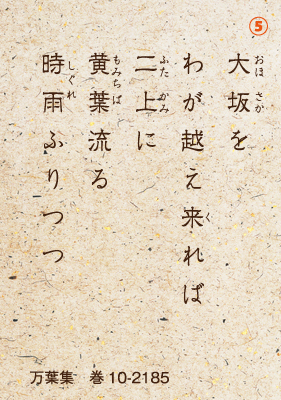 ⑤
大坂を
わが越え来れば
二上に
黄葉流る
時雨ふりつつ
おほさか
く
ふたかみ
もみちば
しぐれ
万葉集 巻10-2185